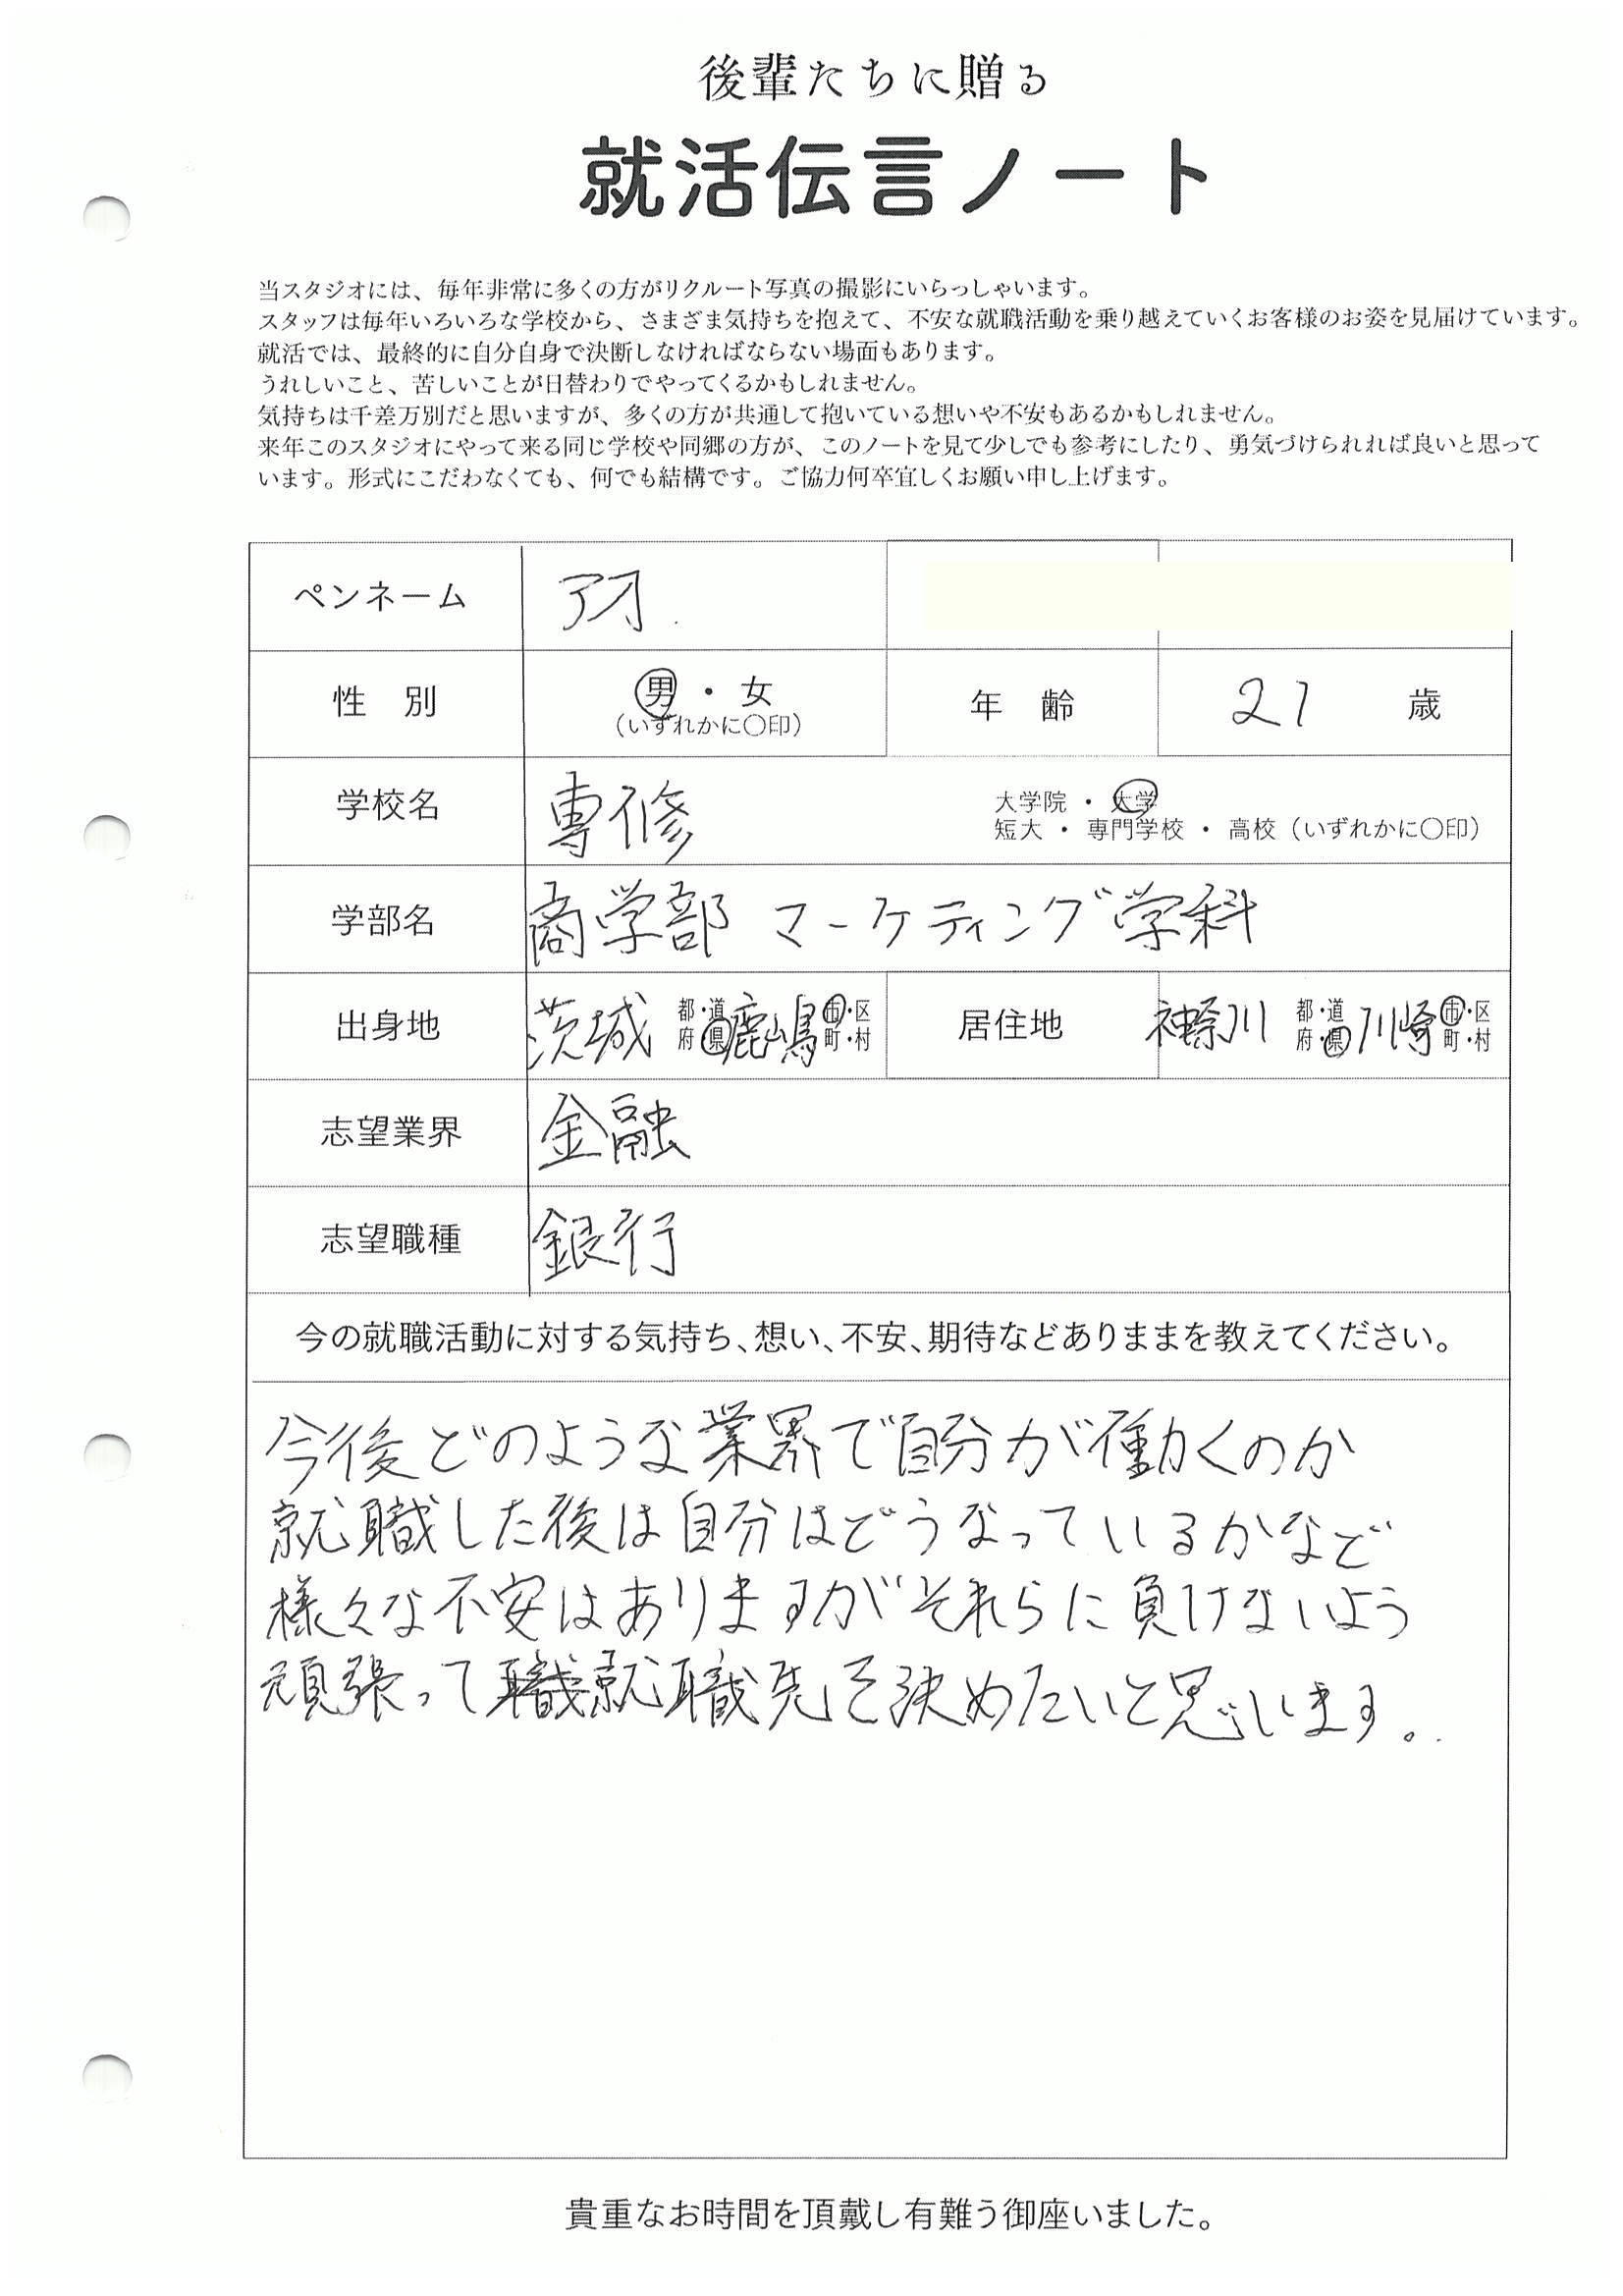 後輩たちに贈る
就活伝言ノート
当スタジオには、毎年非常に多くの方がリクルート写真の撮影にいらっしゃいます。
スタッフは毎年いろいろな学校から、さまざま気持ちを抱えて、不安な就職活動を乗り越えていくお客様のお姿を見届けています。
就活では、最終的に自分自身で決断しなければならない場面もあります。
うれしいこと、苦しいことが日替わりでやってくるかもしれません。
気持ちは千差万別だと思いますが、多くの方が共通して抱いている想いや不安もあるかもしれません。
来年このスタジオにやって来る同じ学校や同郷の方が、このノートを見て少しでも参考にしたり、勇気づけられれば良いと思って
います。形式にこだわなくても、何でも結構です。ご協力何卒宜しくお願い申し上げます。
ペンネーム アオ
性 別 男 ・ 女 年 齢 21 歳
(いずれかに〇印)
学校名 専修 大学院 ・ 大学
短大 ・ 専門学校 ・ 高校 (いずれかに〇印)
学部名 商学部 マーケティング学科
出身地 茨城 都・道府・県 鹿嶋 市・区町・村 居住地 神奈川 都・道府・県 川崎 市・区町・村
志望業界 金融
志望職種 銀行
今の就職活動に対する気持ち、想い、不安、期待などありままを教えてください。
今後どのような業界で自分が働くのか
就職した後は自分はどうなっているかなど
様々な不安はありますがそれらに負けないよう
頑張って就職先を決めたいと思います。
貴重なお時間を頂戴し有難う御座いました。